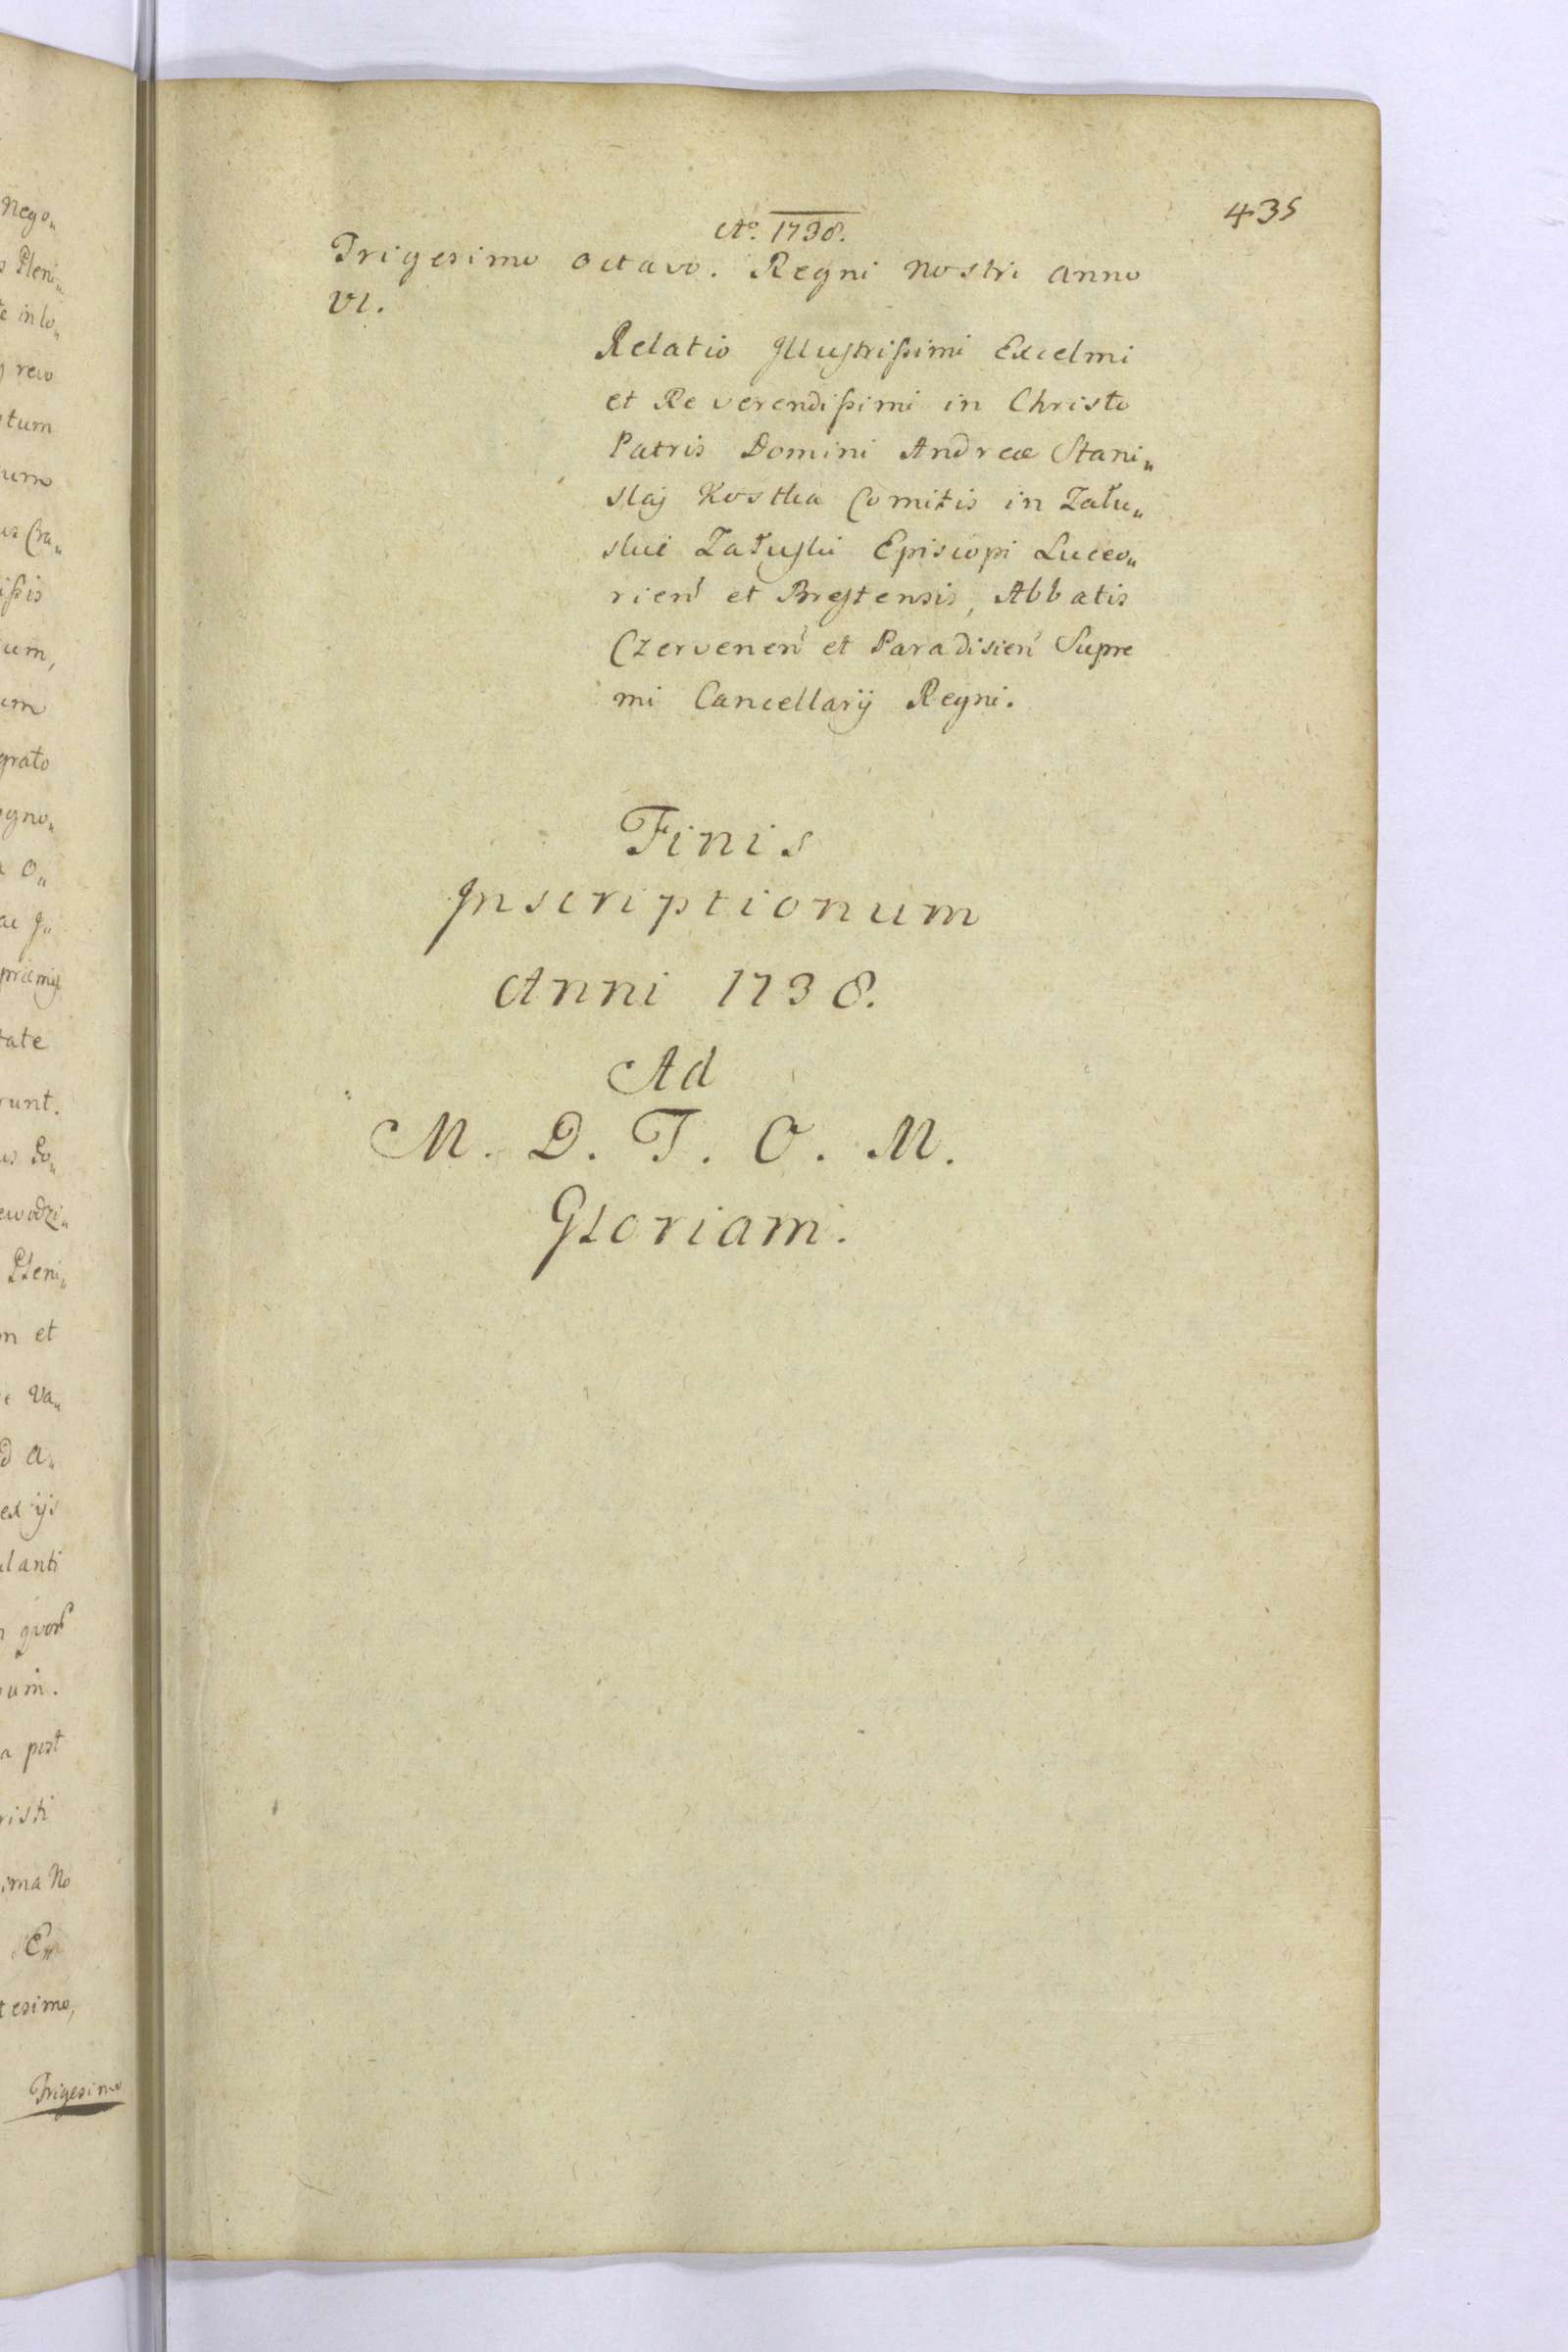 Nego„
s Pleni„
e inlo„
revo
tum
um
us Cra„
ißis
um,
um
grato
ogno„
a O„
ac J„
priemyſl
tate
runt.
us Do„
ewodzi„
Pleni„
m et
e Va„
d A„
ex ijs
ulanti
n quorũ
um.
a post
risti
ima No
E„
tesimo,
Trigesimo
435
Aº. 1738.
Trigesimo octavo. Regni nostri anno
VI.
Relatio Jlluſtrißimi Excelmi
et Reverendißimi in Christo
Patris Domini Andreæ Stani„
slaj Kostka Comitis in Zału„
skie Załuſki Episcopi Luceo„
rien̄ et Breſtensis, Abbatis
Czervenen̄ et Paradisien̄ Supre
mi Cancellarij Regni.
Finis
Jnscriptionum
Anni 1738.
Ad
M. D. T. O. M.
Gloriam.